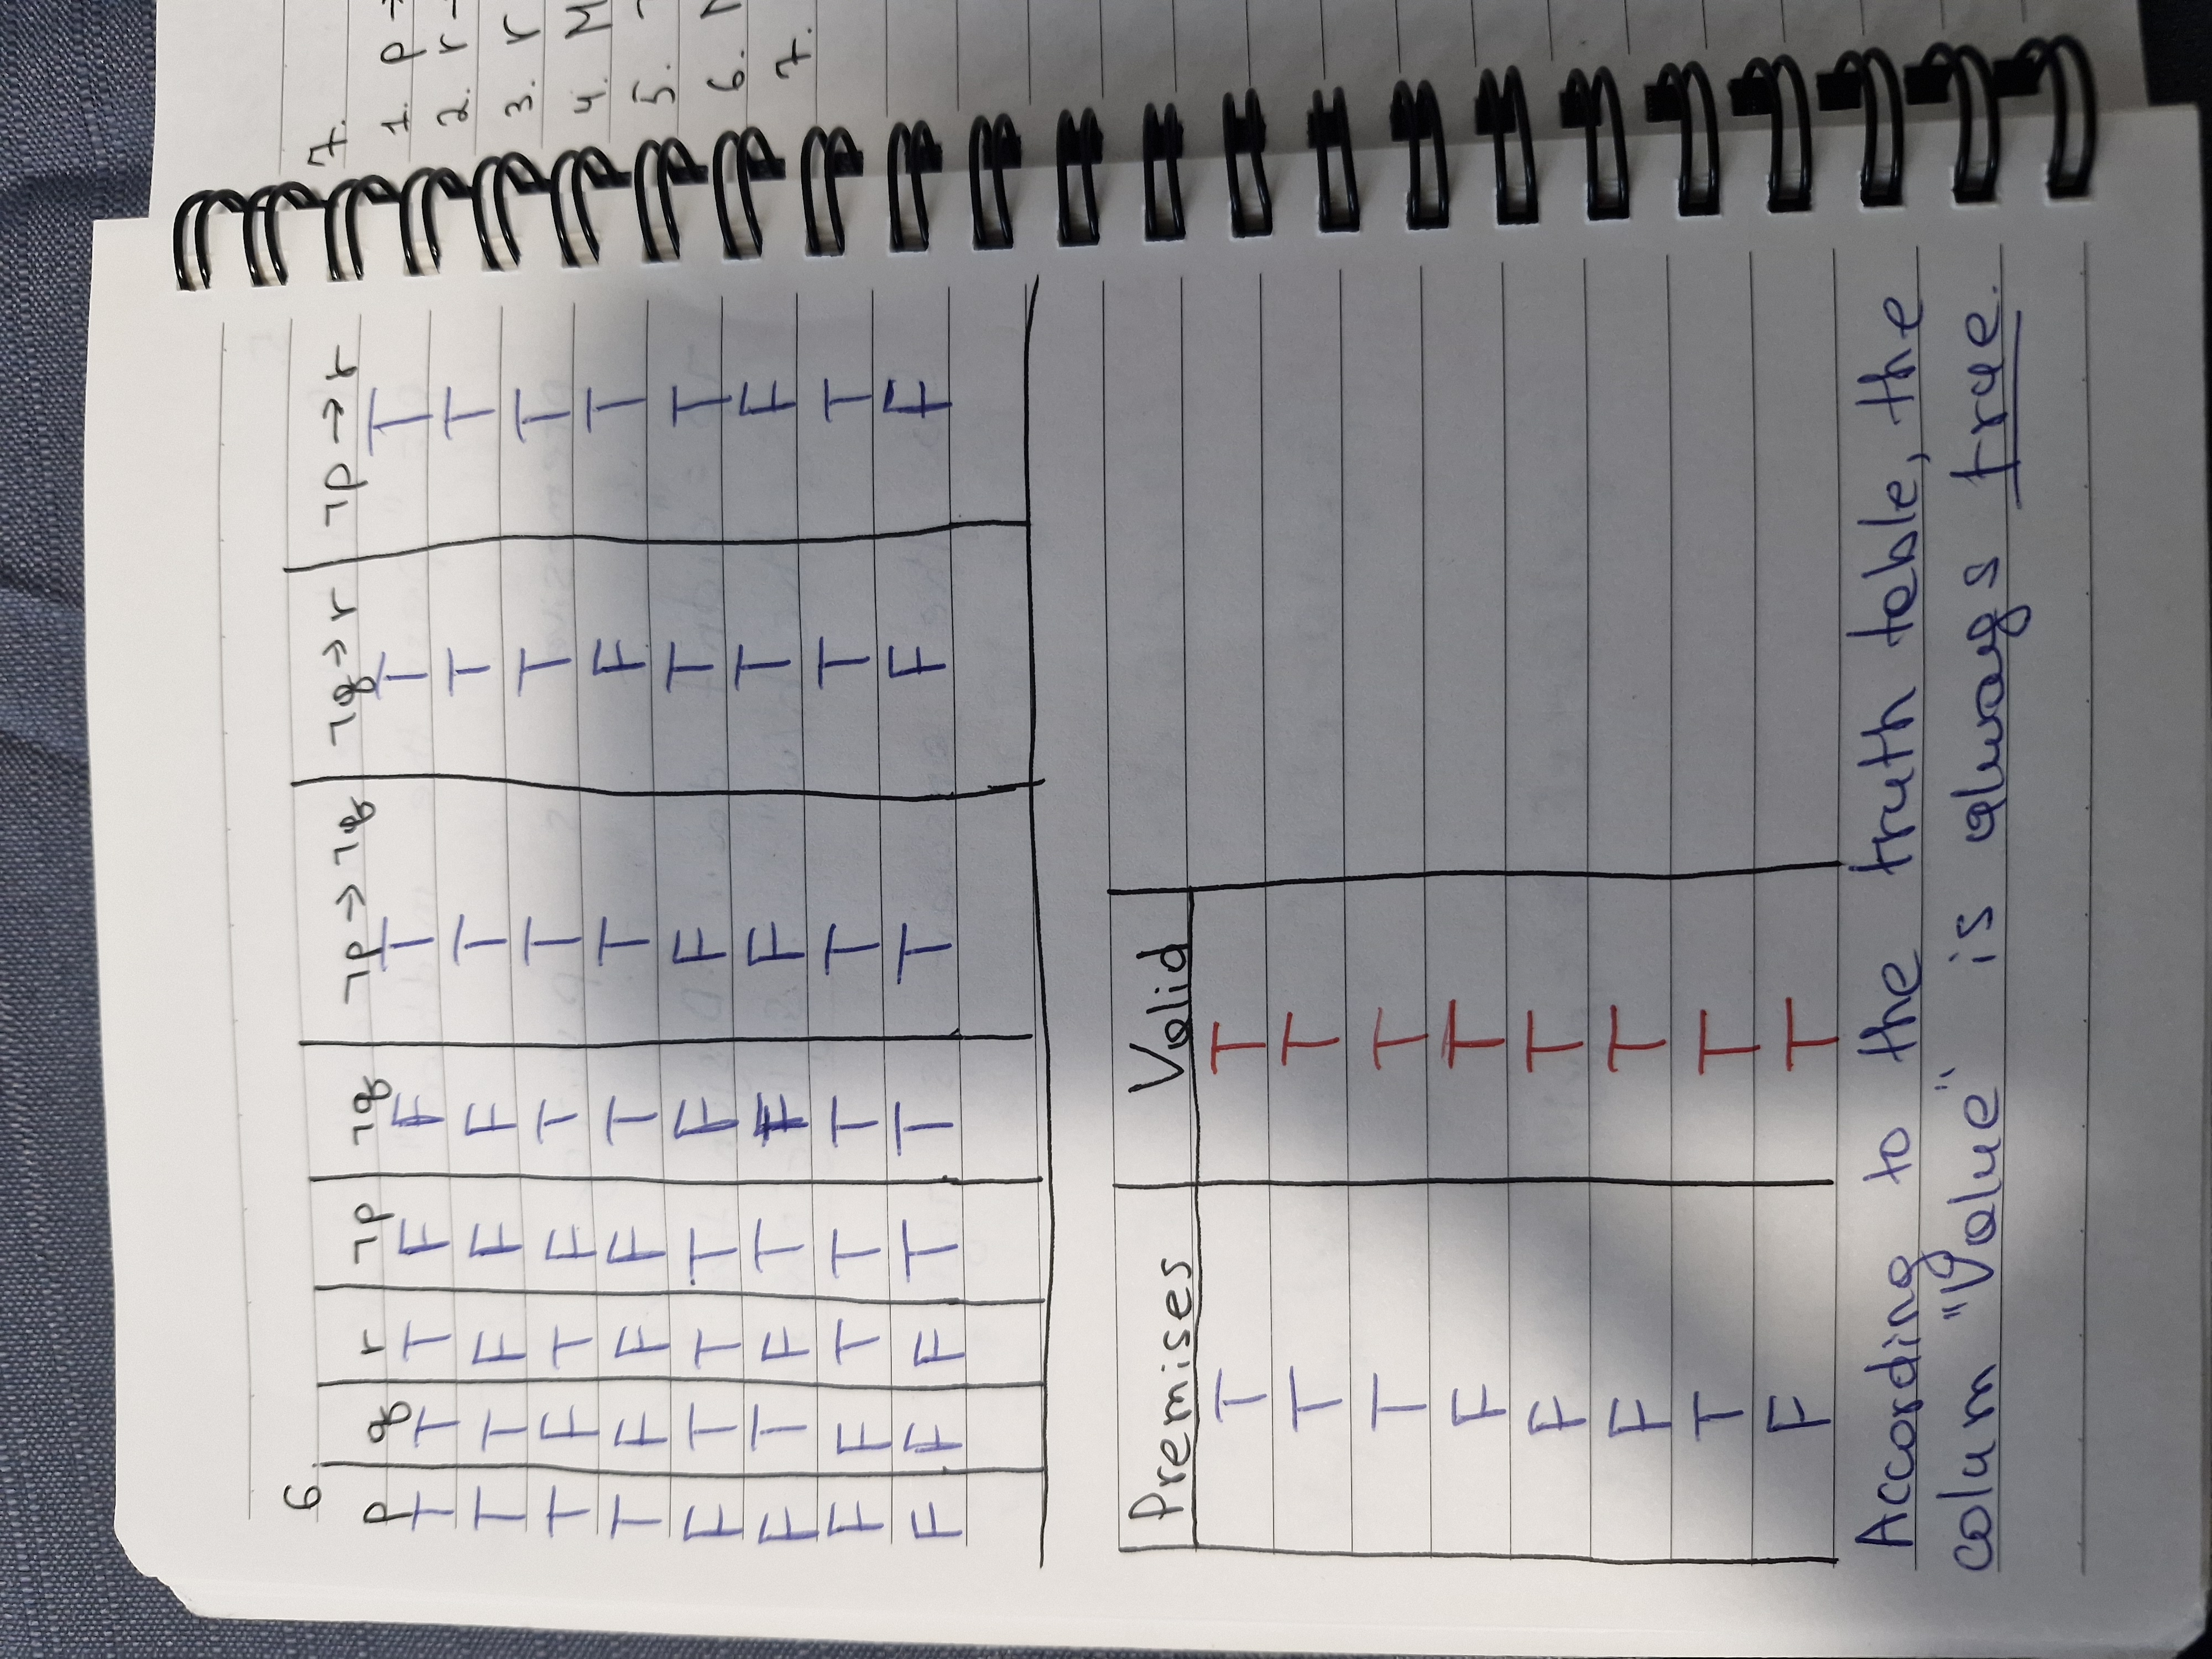 6.
p q r ¬p ¬q ¬p → ¬q ¬q → r ¬p → r
T T T F F T T T
T T F F F T T T
T F T F T T T T
T F F F T T F T
F T T T F F T T
F T F T F F T F
F F T T T T T T
F F F T T T F F
Premises Valid
T T
T T
T T
F T
F T
F T
T T
F T
According to the truth table, the
colum "Value" is always true.
7.
1. p →
2. r –
3. r
4. M
5.
6.
7.